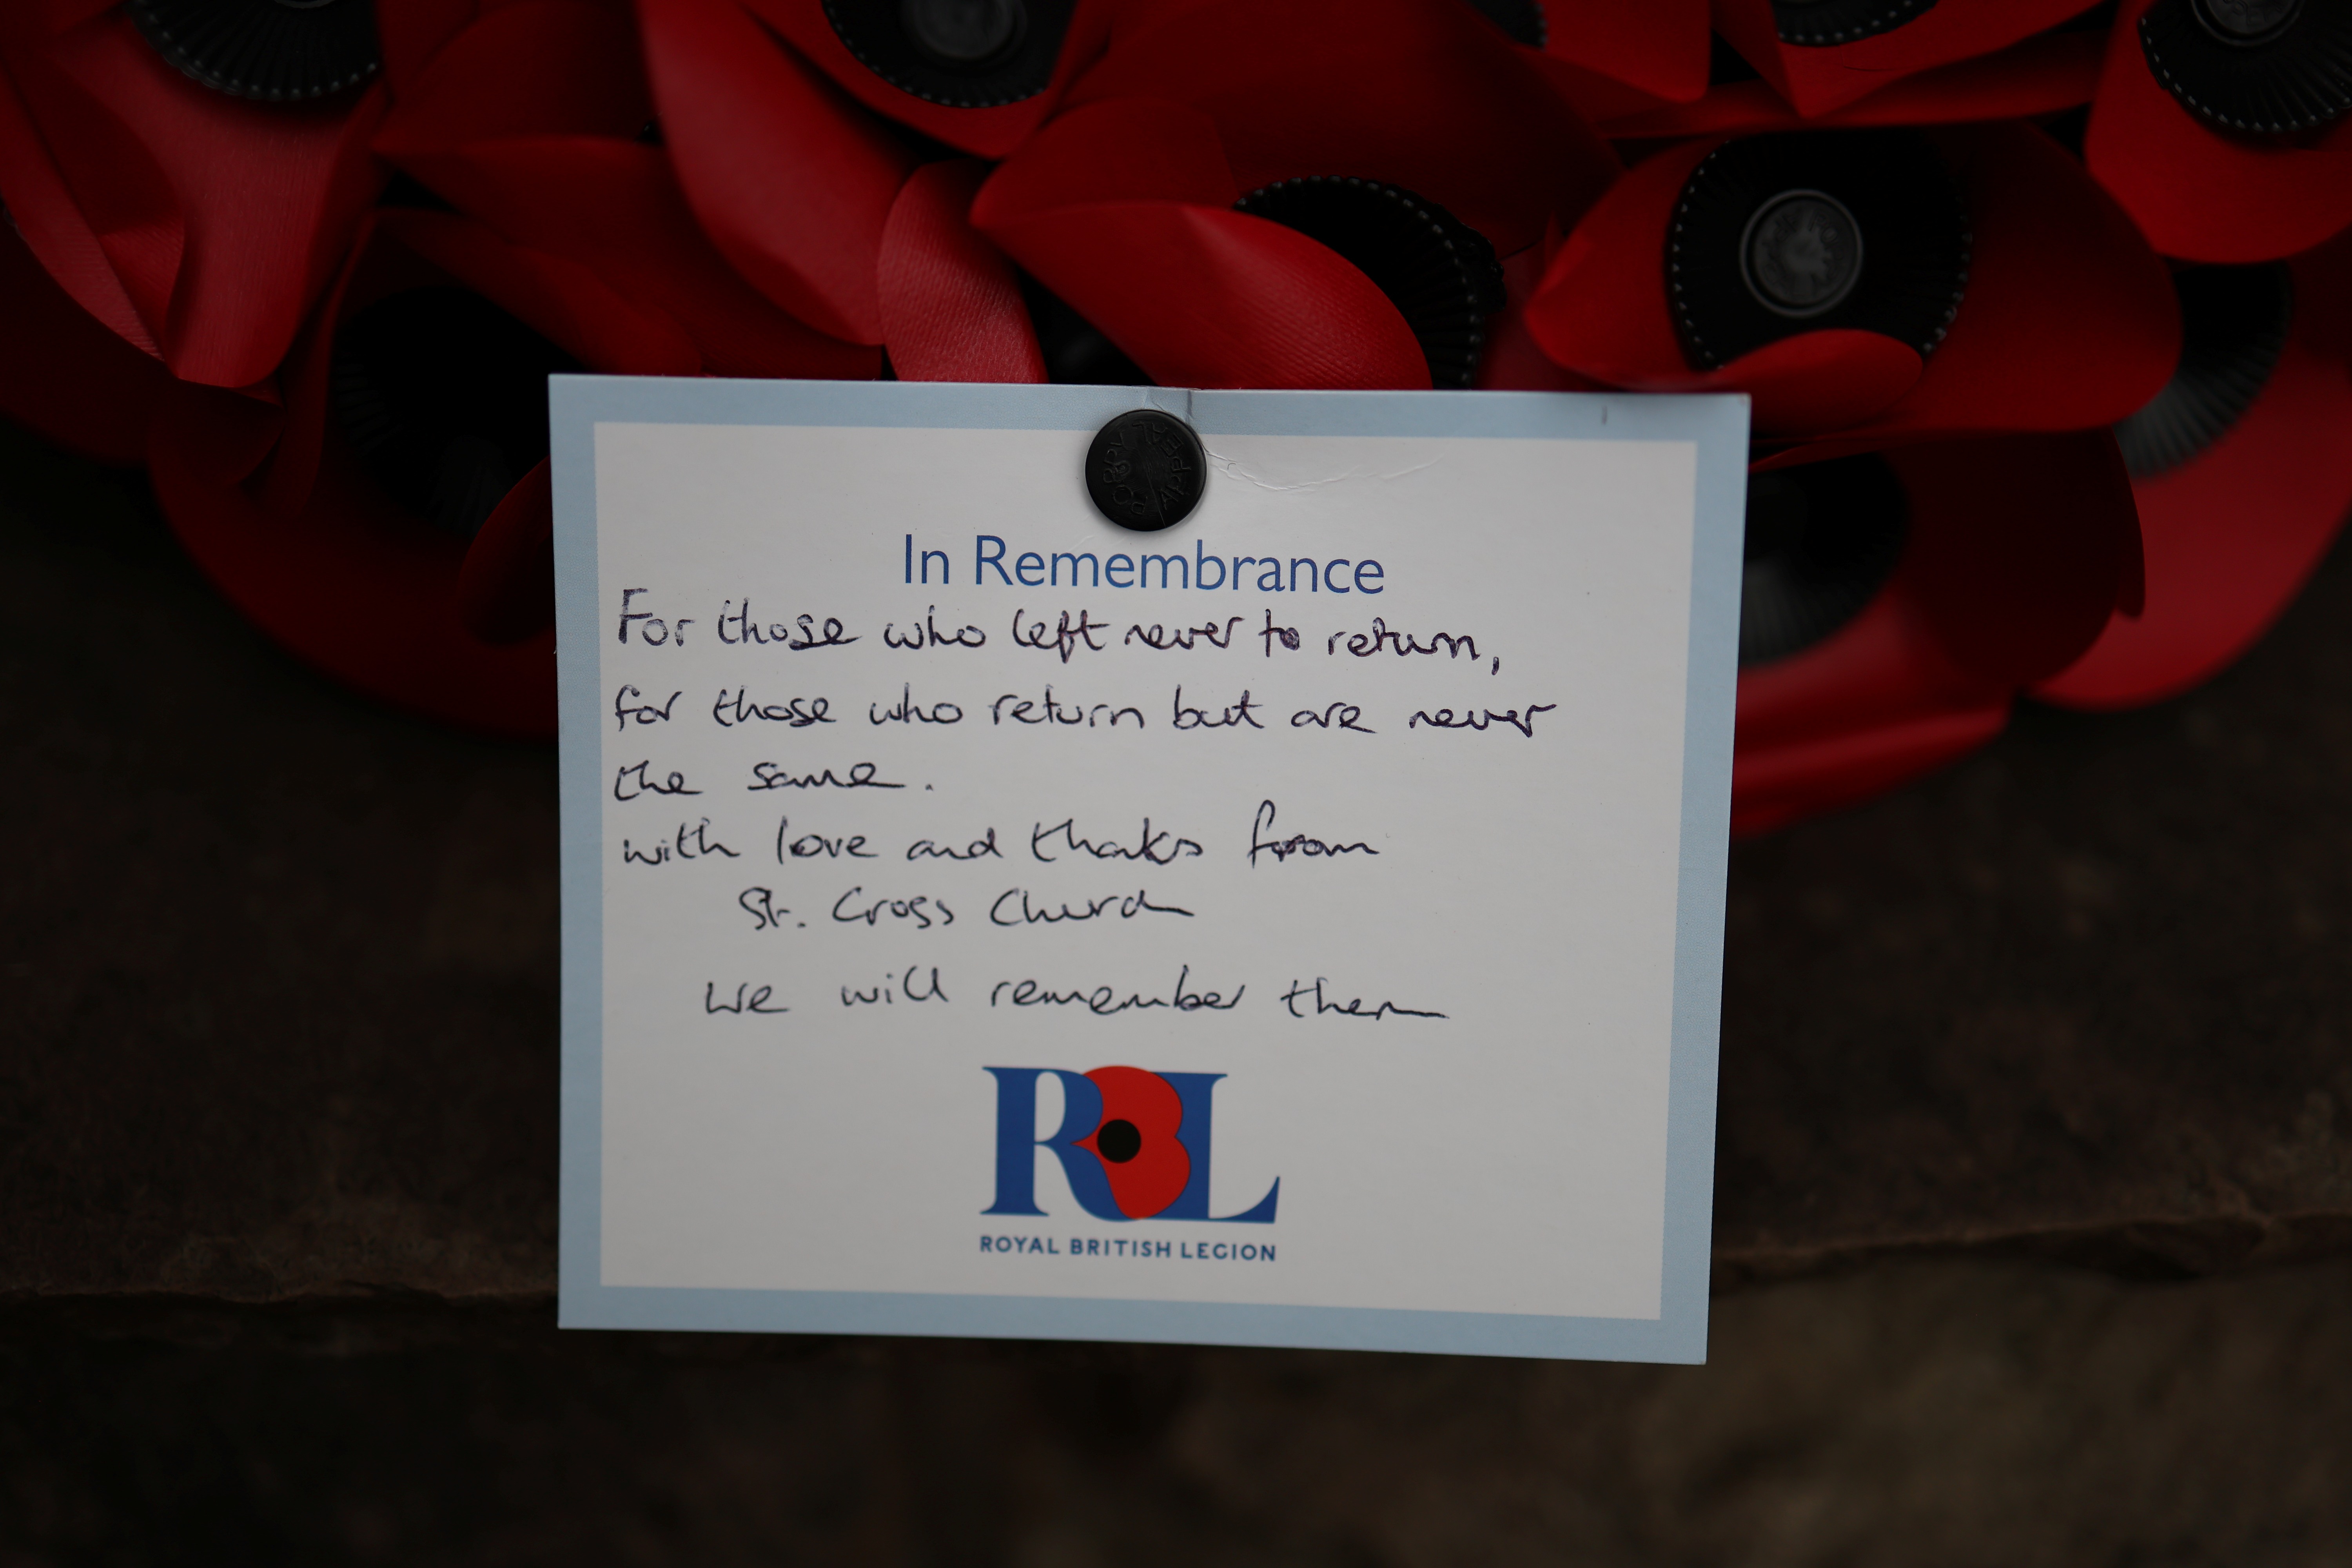 POPPY
APPEAL
In Remembrance
For those who left never to return,
for those who return but are never
the same.
with love and thaks from
St. Cross Church
We will remember them
RBL
ROYAL BRITISH LEGION